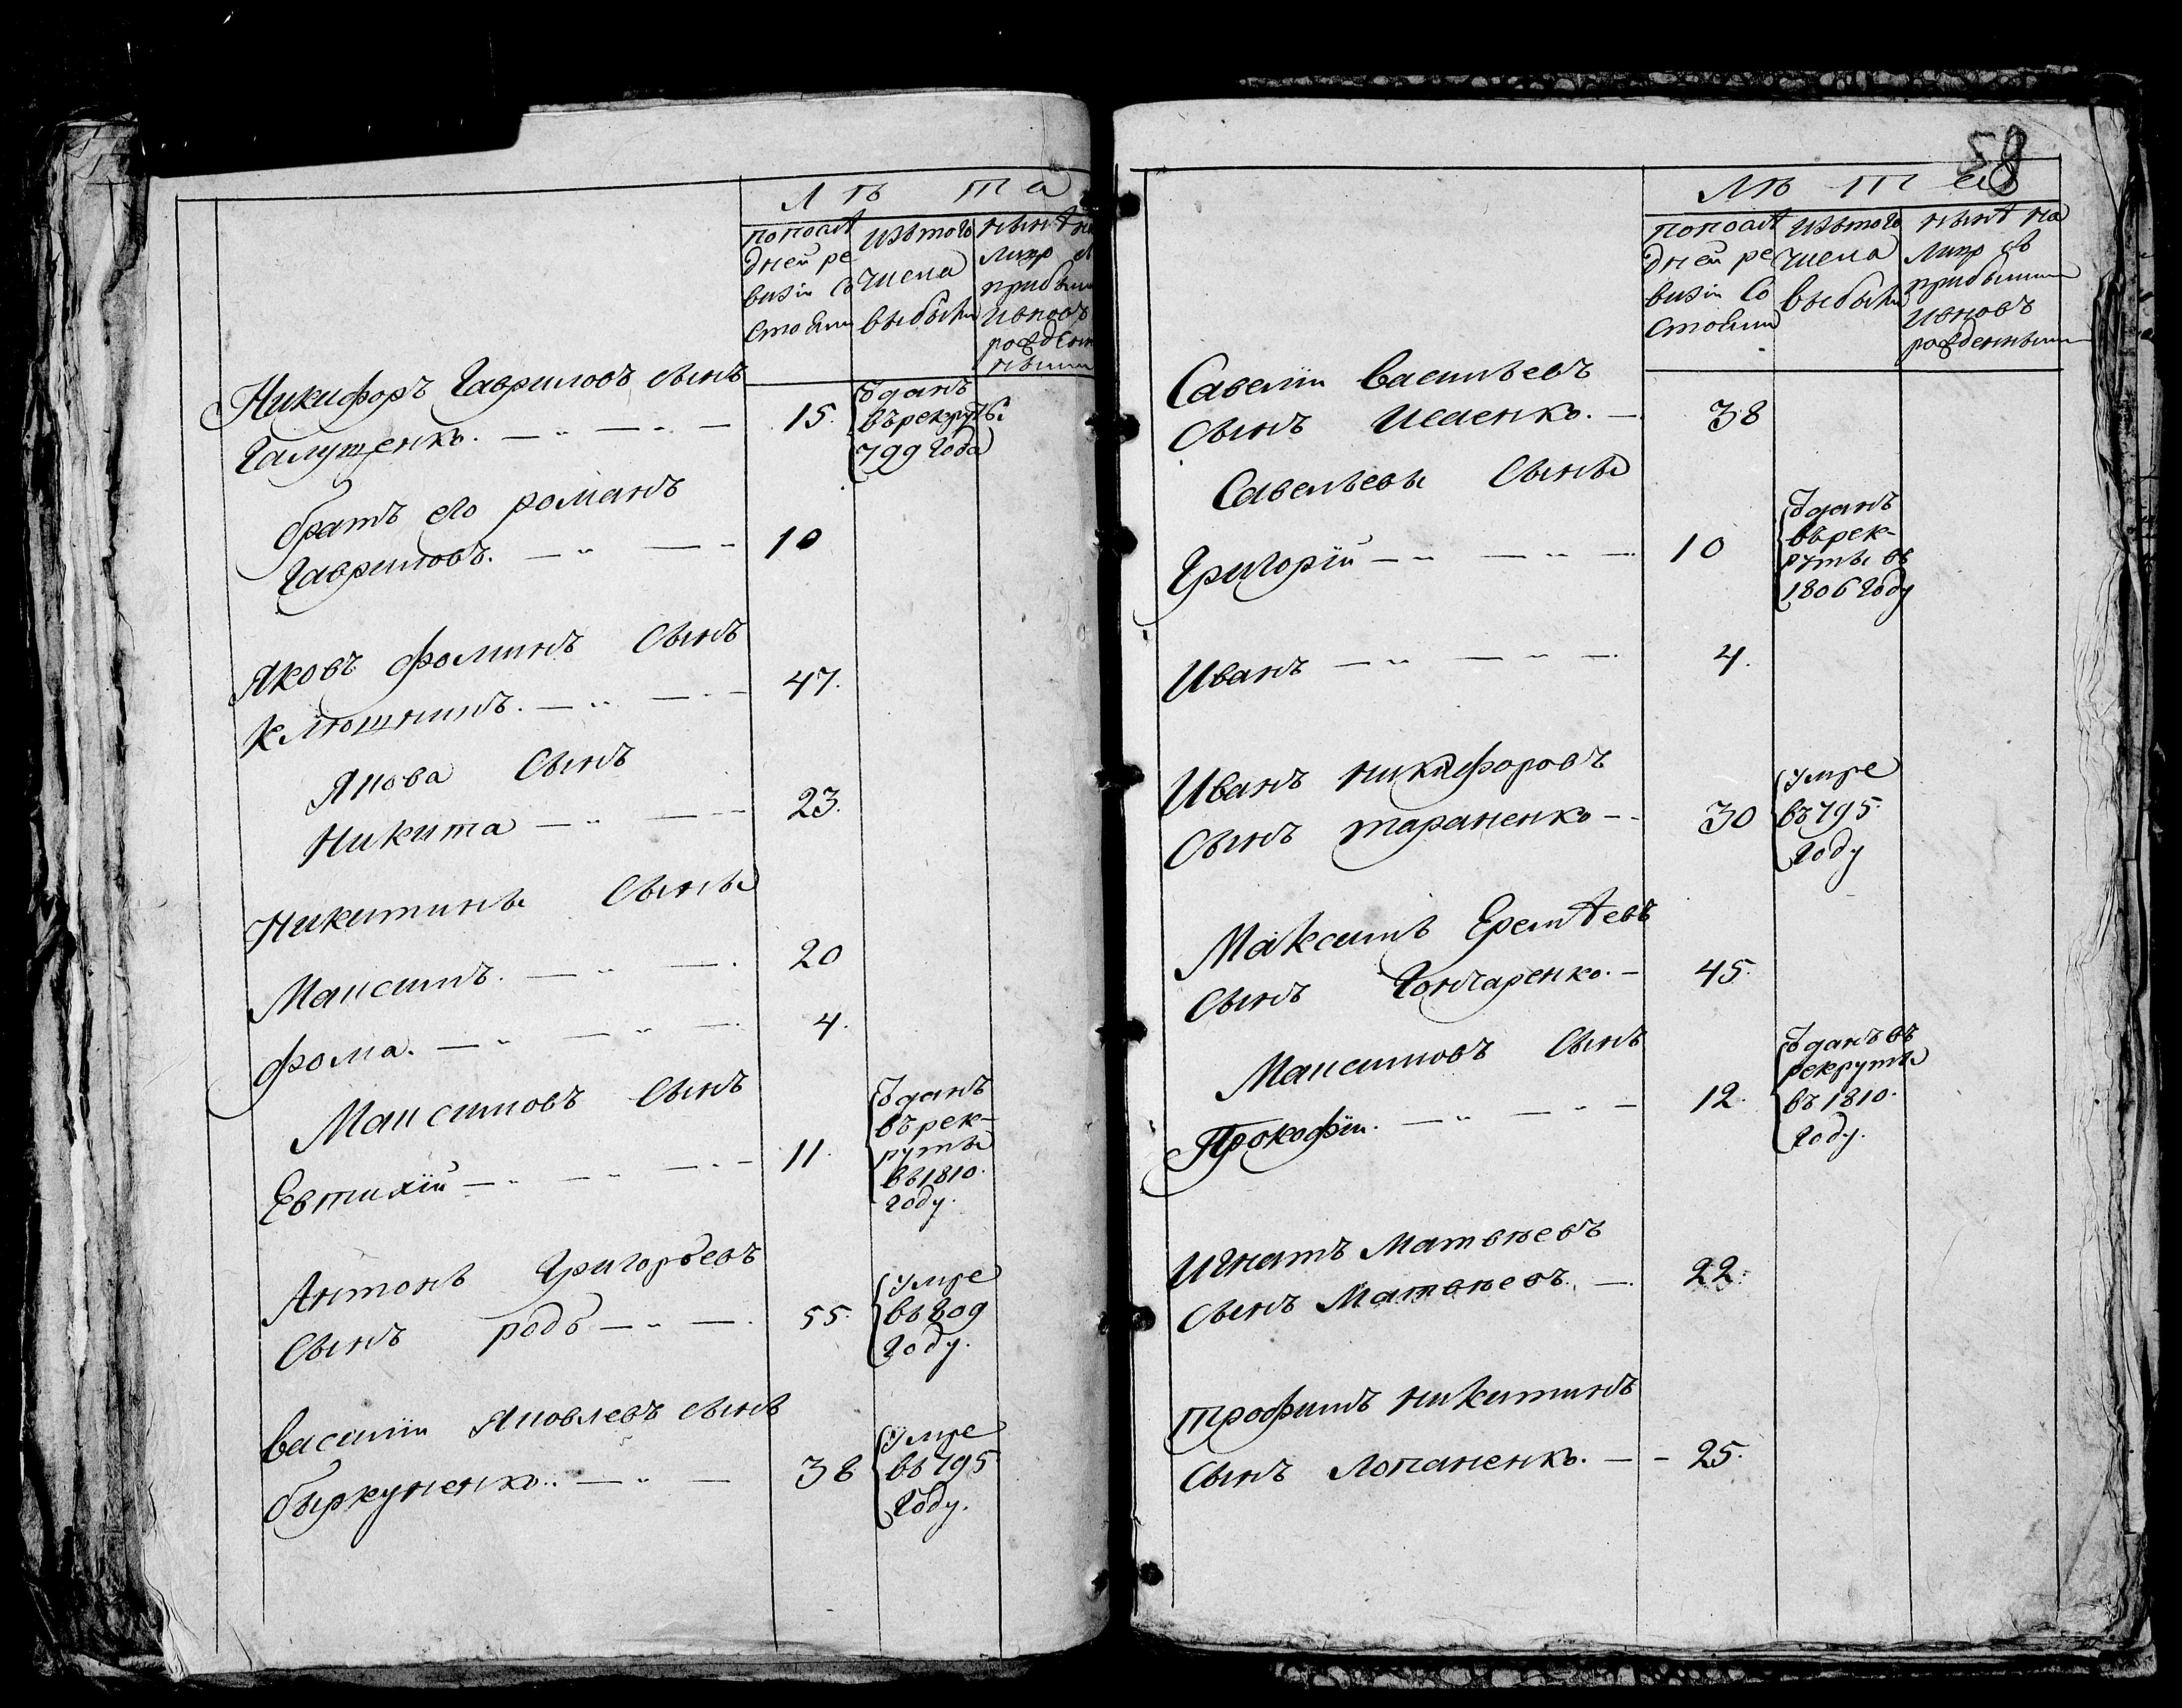 Лѣта
попослѣ
дней ре
визіи со
стояли
изътого
числа
выбыли
нынѣ на
лицо съ
прибыли
ивновь
рожден
ными
Никифоръ Гавриловъ сынъ
Галущенко. 15. ѿданъ
въ рекруты
799 года
братъ его романъ
Гавриловъ. 10
Яковъ фоминъ Сынъ
Клюшникъ. 47.
Якова Сынъ
Никита 23.
Никитины Сынъы
Максимъ. 20
фома. 4.
Максимовъ Сынъ
Евтихій 11. ѿданъ
въ рек-
руты
въ 1810.
году.
Антонъ Григорьевъ
Сынъ родъ 55. умре
въ 809
году.
василіи Яковлевъ сынъ
быркуненко. 38 умре
въ 795
году.
58
Лѣта
попослѣ
дней ре
визіи Со
стояли
изътого
числа
выбыли
нынѣ на
лицо съ
прибылыми
ивновь
рожденными
Савелiи Васильевъ
Сынъ Исаенко. 38
Савельевы Сыны
Григорій 10 ѿданъ
въ рек-
руты въ
1806 году
Иванъ 4.
Иванъ никифоровъ
Сынъ тараненко 30 умре
въ 795.
году
Максимъ Еремѣевъ
Сынъ Гончаренко. 45.
Максимовъ Сынъ
Прокофіи. 12. ѿданъ въ
рекруты
въ 1810.
году.
Игнатъ Матвѣевъ
сынъ Матвѣевъ. 22.
трофимъ никитинъ
Сынъ Лопаненко. 25.